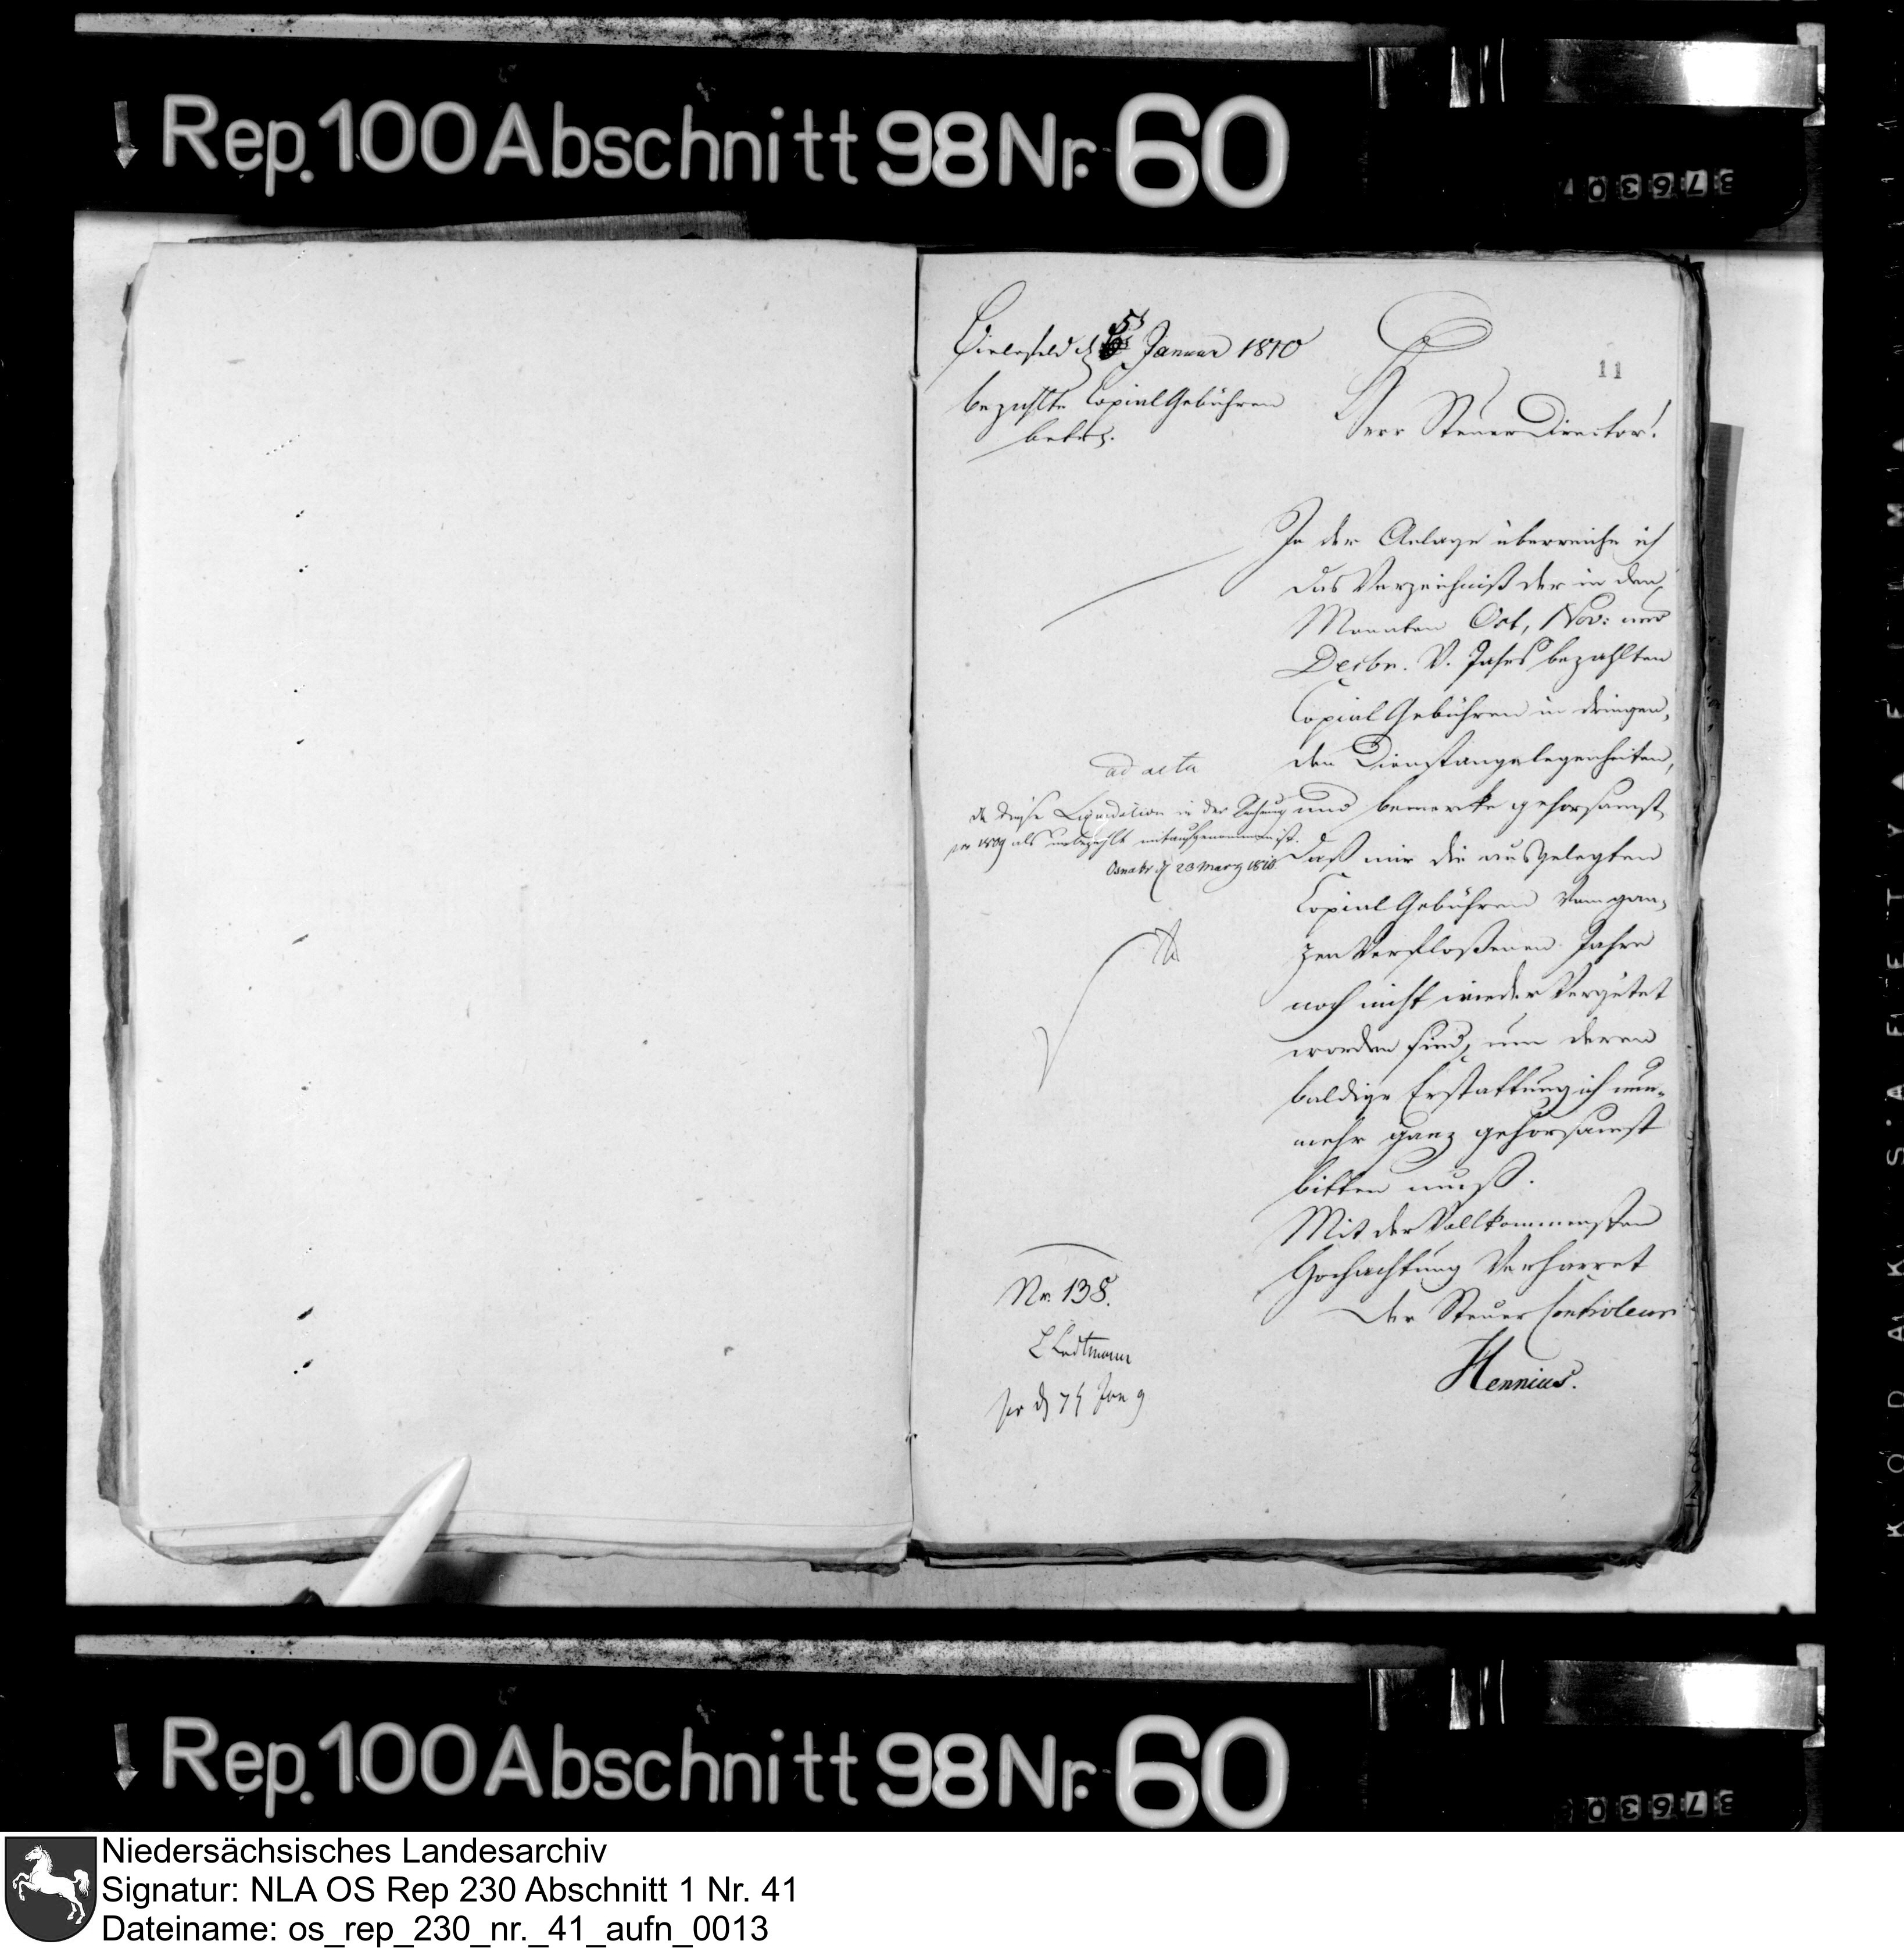 Rep. 100 Abschnitt 98 Nr. 60
37630
11
Bielefeld d 5t Januar 1810
bezahlte Copial Gebühren
betr.
Herr Steuer Director!
In der Anlage überreiche ich
das Verzeichniß der in den
Monaten Oct, Nov: und
Decbr. V. Jahrs bezahlten
Copial Gebühren in dringen,
den Dienstangelegenheiten,
und bemerke gehorsamst
daß mir die ausgelegten
Copial Gebühren vom gan,
zen Verfloßenen Jahre
noch nicht wieder Vergütet
worden sind, um deren
baldige Erstattung ich nun,
mehr ganz gehorsamst
bitten muß.
Mit der Vollkommensten
Hochachtung Verharret
der Steuer Controleur
Hennius.
ad acta
da diese Liquidation in der Rechnung
pro 1809 als unbezahlt mitaufgenommen ist.
Osnabr d 23 Marz 1810.
Nr. 138.
d 7t Jan
KODAK SAFETY FILM
Rep. 100 Abschnitt 98 Nr. 60
37630
Niedersächsisches Landesarchiv
Signatur: NLA OS Rep 230 Abschnitt 1 Nr. 41
Dateiname: os_rep_230_nr._41_aufn_0013